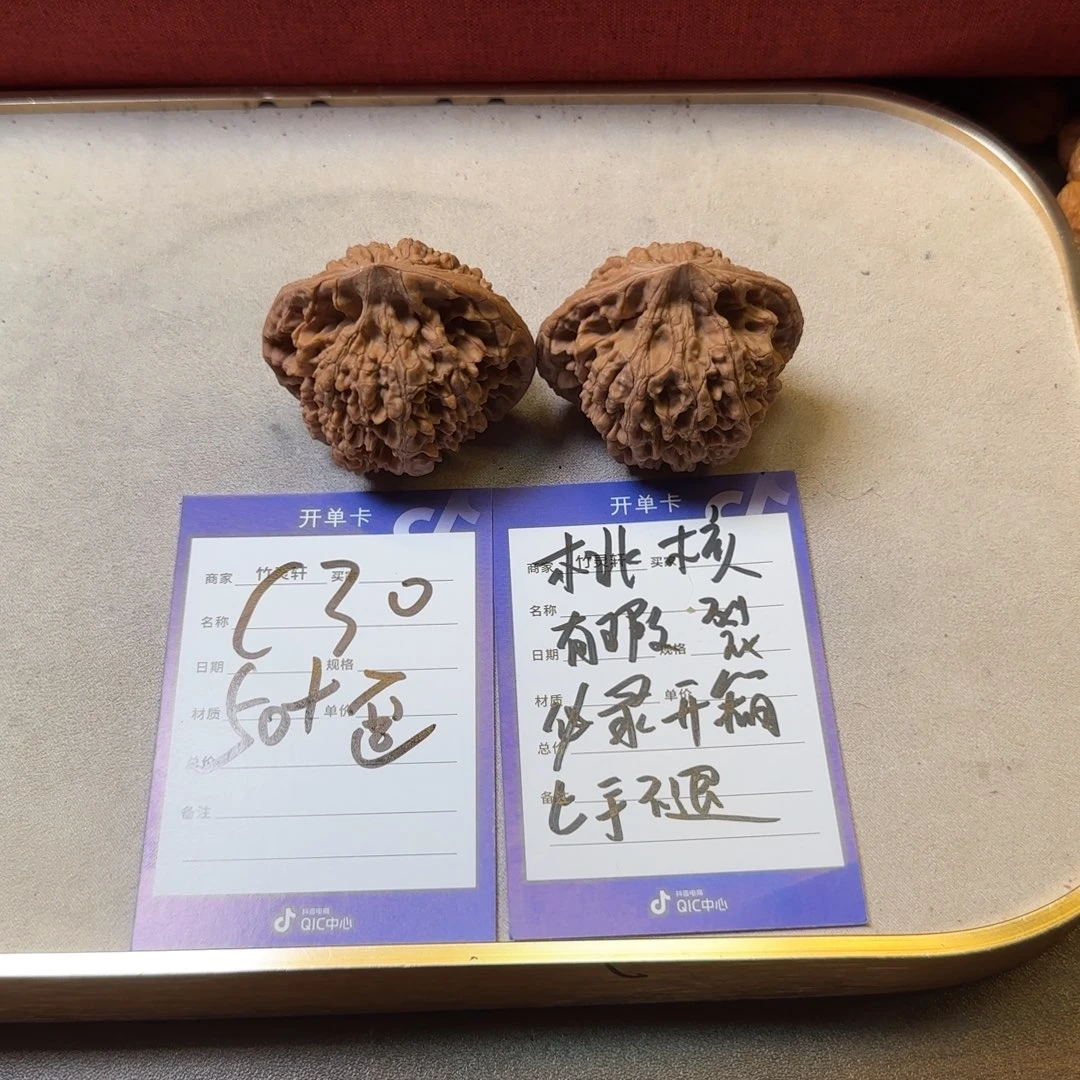 开单卡
商家 竹灵轩 买家
C30
名称
日期 规格
50+歪
材质 单价
总价
备注
抖音电商
QIC中心
开单卡
商家 竹灵轩 买家
桃核
名称
有瑕 裂
日期 规格
材质 单价
必录开箱
总价
备注
上手不退
抖音电商
QIC中心